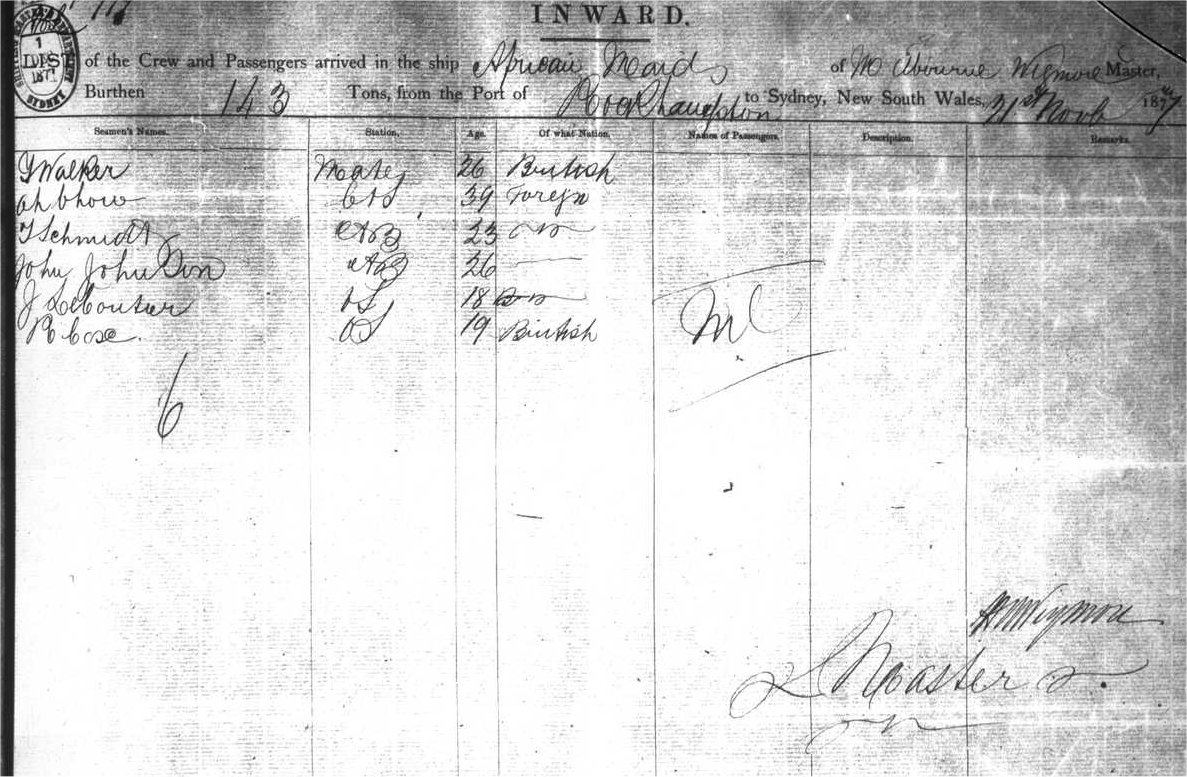 INWARD.
of the Crew and Passengers arrived in the ship African Maid of Melbourne Wigmore Master,
Burthen 143 Tons, from the Port of to Sydney, New South Wales, 21st Novb 187
Seamen's Names. Station. Age. Of what Nation. Names of Passengers. Description. Remarks.
Walker Mate 26 British
Ah Chow C & S 39 Foreign
Schmidt AB 25 do
John AB 26
J OS 18 do
R Cose OS 19 British
6
Master
1 DPS
SYDNEY